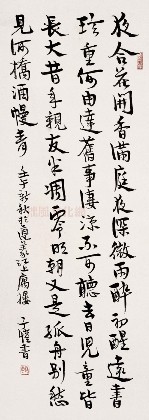 夜合花開香滿庭夜深微雨醉初醒遠書
珍重何由達舊事淒涼不可聽去日兒童皆
長大昔年親友半凋零明朝又是孤舟別愁
見河橋酒幔青 壬午新秋於遵義 子愷書